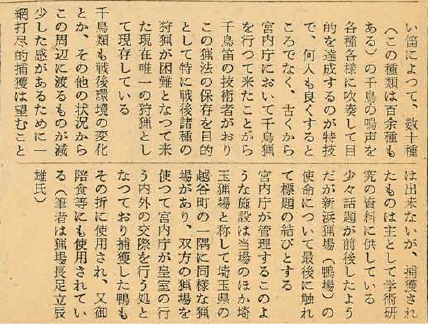 い笛によつて、数十種
（この種類は百余種も
ある）の千鳥の鳴声を
各種各様に吹奏して目
的を達成するのが特技
で、何人も良くすると
ころでなく、古くから
宮内庁において千鳥猟
を行つて来たことがら
千鳥笛の技術者がおり
この猟法の保存を目的
として特に戦後諸種の
狩猟が困難となつて来
た現在唯一の狩猟とし
て現存している
千鳥類も戦後環境の変化
とか、その他の状況から
この周辺に渡るものが減
少した感があるために一
網打尽的捕獲は望むこと
は出来ないが、捕獲され
たものは主として学術研
究の資料に供している
少々話題が前後したよう
だが新浜猟場（鴨場）の
使命について最後に触れ
て標題の結びとする
宮内庁が管理するこのよ
うな施設は当場のほか埼
玉猟場と称して埼玉県の
越谷町の一隅に同様な猟
場があり、双方の猟場を
使つて宮内庁が皇室の行
う内外の交際を行う処と
なつており捕獲した鴨も
その折に使用され、又御
陪食等にも使用されてい
る（筆者は猟場長足立辰
雄氏）